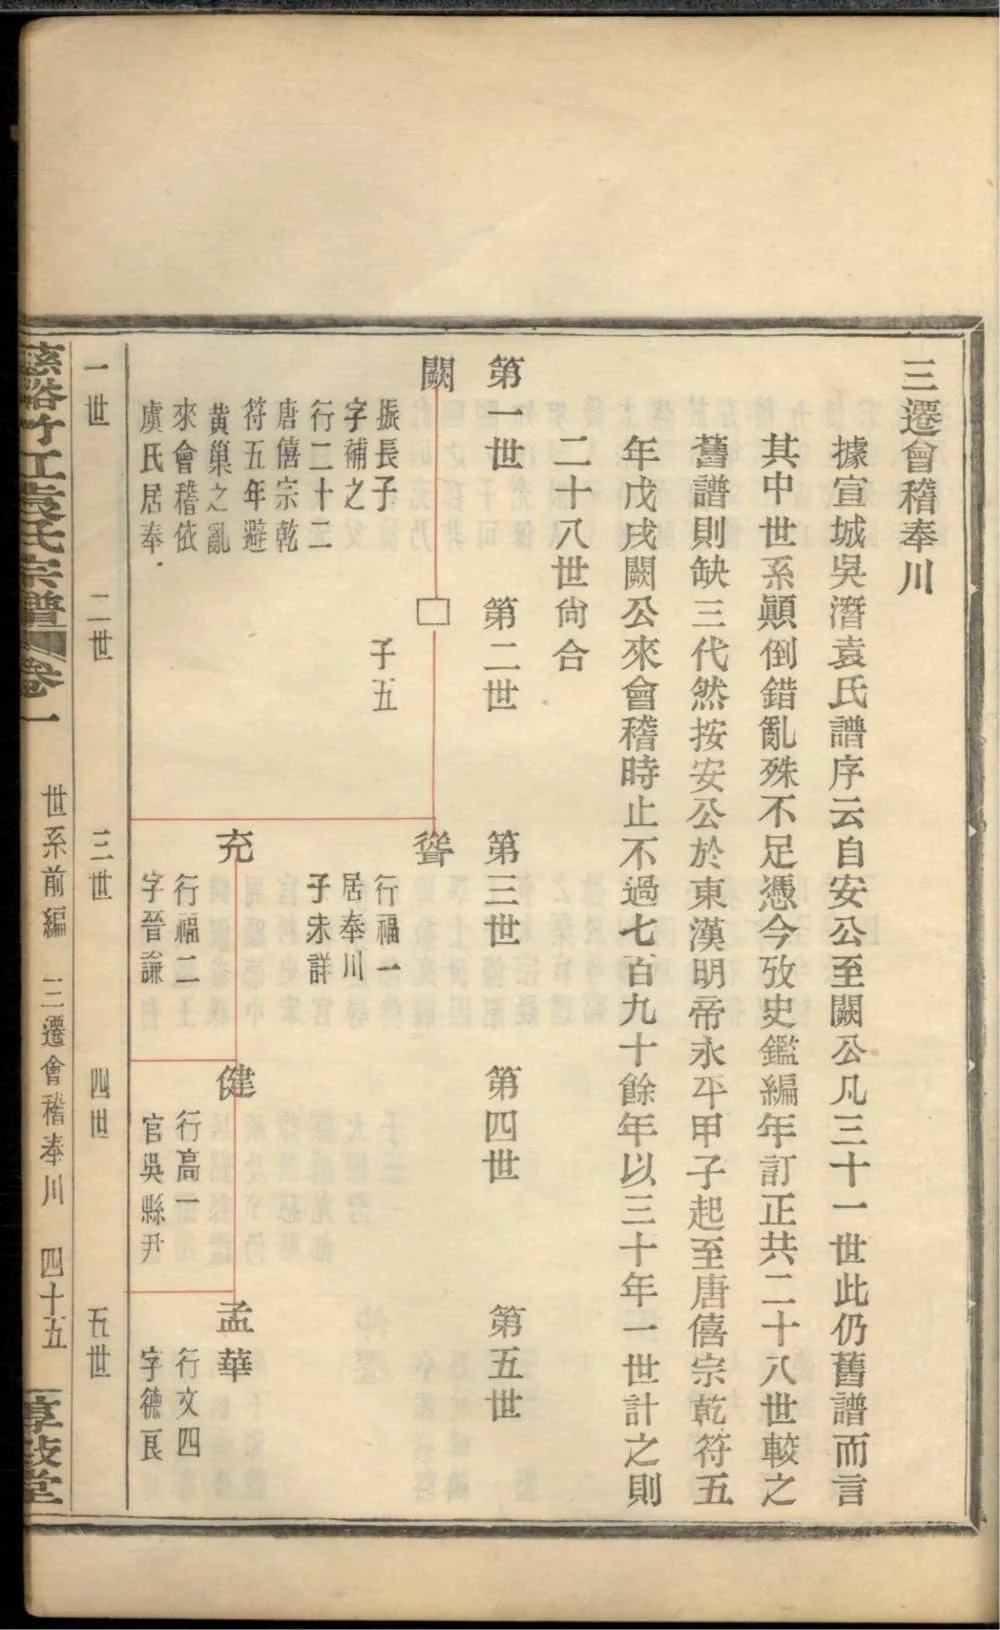 三遷會稽奉川
據宣城吳潛袁氏譜序云自安公至闕公凡三十一世此仍舊譜而言
其中世系顚倒錯亂殊不足憑今攷史鑑編年訂正共二十八世較之
舊譜則缺三代然按安公於東漢明帝永平甲子起至唐僖宗乾符五
年戊戌闕公來會稽時止不過七百九十餘年以三十年一世計之則
二十八世尙合
第一世
第二世
第三世
第四世
第五世
闕
振長子
字補之
行二十二
唐僖宗乾
符五年避
黃巢之亂
來會稽依
虞氏居奉
□
子五
聳
行福一
居奉川
子未詳
充
行福二
字晉謙
健
行高一
官吳縣尹
孟華
行文四
字德良
一世
二世
三世
四世
五世
慈谿竹江袁氏宗譜
卷一
世系前編
三遷會稽奉川
四十五